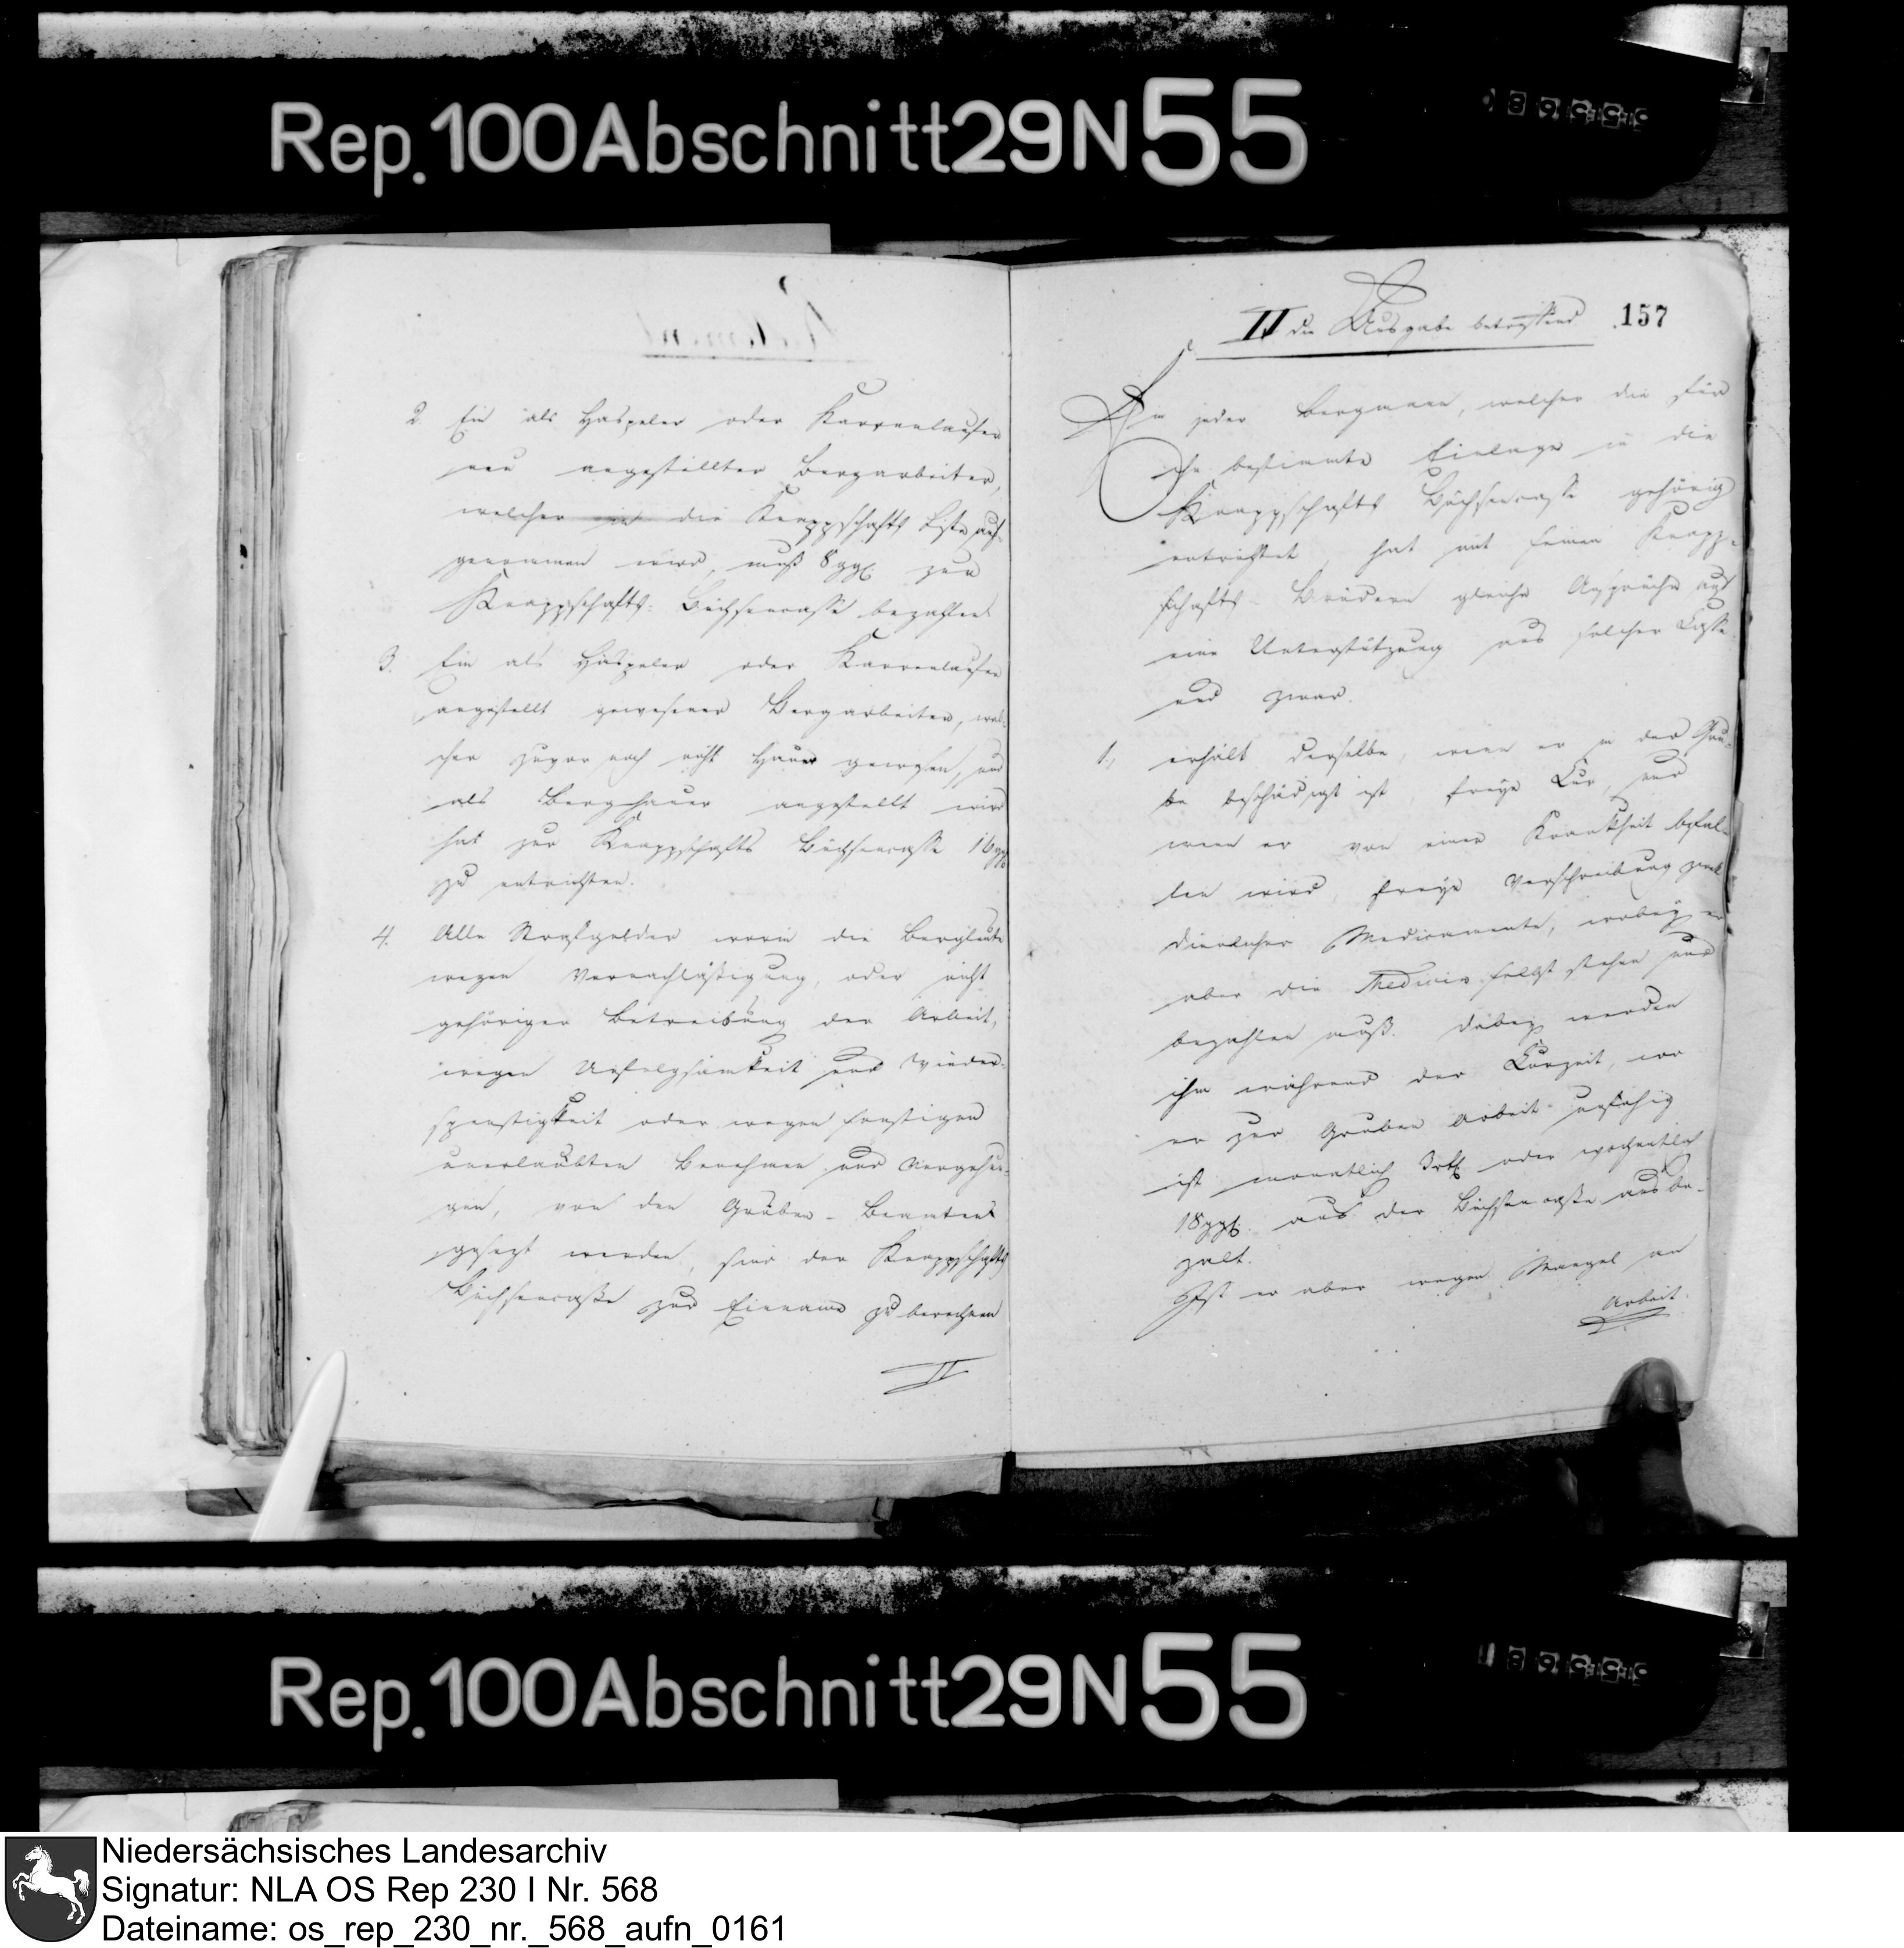 Rep.100Abschnitt29N55
2. Ein als Haspeler oder Karrenlaufer
neu angestellter Bergarbeiter,
welcher in die Knappschafts Liste auf-
genommen wird, muß 8 ggl. zur
Knappschafts-Büchsencasse bezahlen
3. Ein als Haspeler oder Karrenlaufer
angestellt gewesener Bergarbeiter, wel-
cher zuvor noch nicht Hauer gewesen, und
als Berghauer angestellt wird
hat zur Knappschafts Büchsencasse 16 ggl
zu entrichten.
4. Alle Strafgelder worin die Bergleute
wegen Vernachläßigung, oder nicht
gehöriger Betreibung der Arbeit,
wegen Unfolgsamkeit und Wieder-
spenstigkeit oder wegen sonstigen
unerlaubten Benehmen und Vergehun-
gen, von den Gruben-Beamten
gesezt werden, sind der Knappschafts
Büchsencaße zur Einname zu berechnen
II
II die Ausgabe betreffend
157
Ein jeder Bergmann, welcher die für
ihn bestimmte Einlage in die
Knappschafts Büchsencasse gehörig
entrichtet, hat mit seinen Knapp-
schafts-Brüdern gleiche Ansprüche auf
eine Unterstützung aus solcher Casse
und zwar.
1., erhält derselbe, wenn er in der Gru-
be beschädigt ist, freye Cur, und
wenn er von einer Krankheit befal-
len wird, freye Verschreibung zweck
dienlicher Medicamente, wobey er
aber die Medicin selbst stehen und
bezahlen muß. Dabey werden
ihm während der Curzeit, wo
er zur Gruben Arbeit unfähig
ist monatlich 3 rtl. oder wochentlich
18 ggl. aus der Büchsencaße ausbe-
zalt.
Ist er aber wegen Mangel an
Arbeit.
Rep.100Abschnitt29N55
Niedersächsisches Landesarchiv
Signatur: NLA OS Rep 230 I Nr. 568
Dateiname: os_rep_230_nr._568_aufn_0161